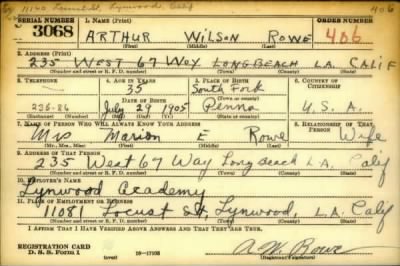 11140 Locust St, Lynwood, Calif 406
SERIAL NUMBER 1. Name (Print) ORDER NUMBER
3068 ARTHUR WILSON ROWE 406
(First) (Middle) (Last)
2. Address (Print)
235 WEST 67 WAY LONG BEACH L.A. CALIF
(Number and street or R. F. D. number) (Town) (County) (State)
3. Telephone 4. Age in Years 5. Place of Birth 6. Country of Citizenship
35 South Fork
Date of Birth (Town or county)
236-86 July 29 1905 Penna U.S.A.
(Mo.) (Day) (Yr.) (State or country)
7. Name of Person Who Will Always Know Your Address 8. Relationship of That Person
Mrs Marion E Rowe Wife
(Mr., Mrs., Miss) (First) (Middle) (Last)
9. Address of That Person
235 West 67 Way Long Beach L.A. Calif
(Number and street or R. F. D. number) (Town) (County) (State)
10. Employer's Name
Lynwood Academy
11. Place of Employment or Business
11081 Locust St, Lynwood, L.A. Calif
(Number and street or R. F. D. number) (Town) (County) (State)
I Affirm That I Have Verified Above Answers and That They Are True.
REGISTRATION CARD
D. S. S. Form 1 16-17105 A. W. Rowe
(Registrant's signature)